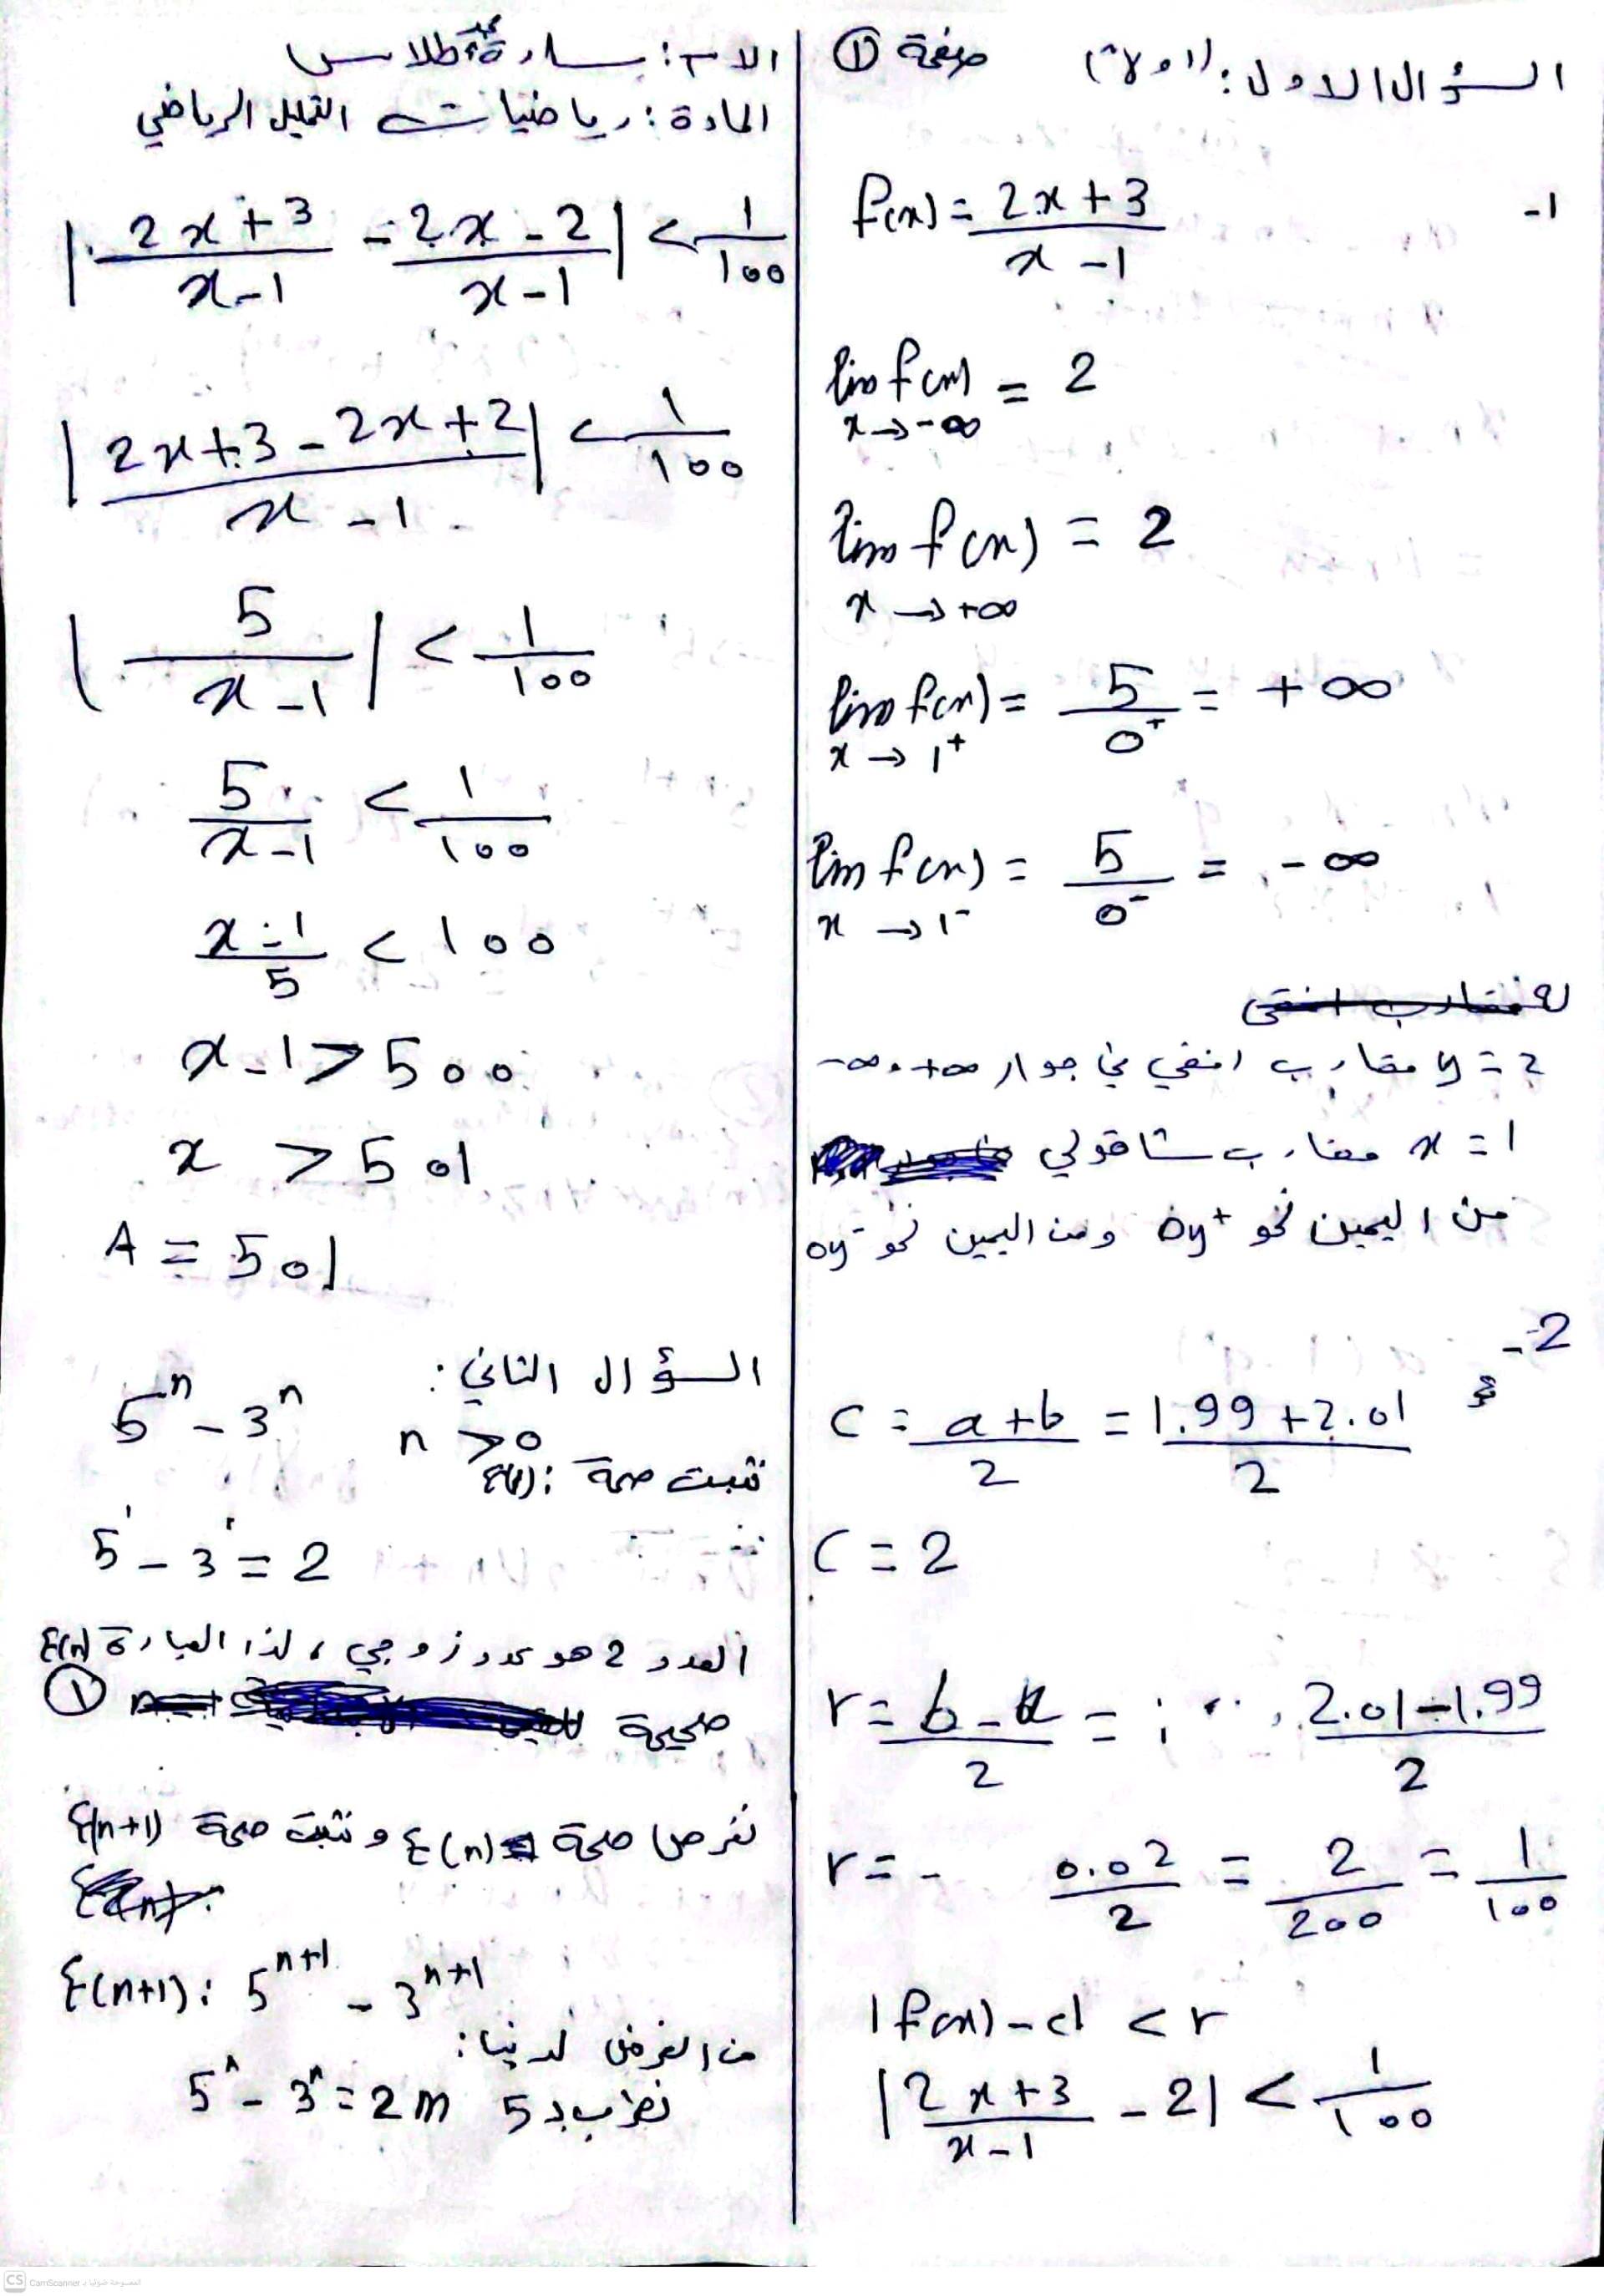 السؤال الاول: (اولاً) صفحة ①
-1
f(x) = \frac{2x+3}{x-1}
lim f(x) = 2
x→-∞
lim f(x) = 2
x→+∞
lim f(x) = \frac{5}{0^+} = +∞
x→1^+
lim f(x) = \frac{5}{0^-} = -∞
x→1^-
y = 2 مقارب افقي في جوار +∞ , -∞
x = 1 مقارب شاقولي
من اليمين نحو oy^+ ومن اليمين نحو oy^-
-2
c = \frac{a+b}{2} = \frac{1.99+2.01}{2}
c = 2
r = \frac{b-a}{2} = \frac{2.01-1.99}{2}
r = \frac{0.02}{2} = \frac{2}{200} = \frac{1}{100}
|f(x) - c| < r
|\frac{2x+3}{x-1} - 2| < \frac{1}{100}
الاسم: سارة محمد طلاس
المادة: رياضيات التحليل الرياضي
|\frac{2x+3}{x-1} - \frac{2x-2}{x-1}| < \frac{1}{100}
|\frac{2x+3-2x+2}{x-1}| < \frac{1}{100}
|\frac{5}{x-1}| < \frac{1}{100}
\frac{5}{x-1} < \frac{1}{100}
\frac{x-1}{5} < 100
x-1 > 500
x > 501
A = 501
السؤال الثاني:
5^n - 3^n n > 0
نثبت صحة E(1):
5^1 - 3^1 = 2
العدد 2 هو عدد زوجي، لذا العبارة E(n)
صحيحة ①
نفرض صحة E(n) و نثبت صحة E(n+1)
E(n+1): 5^{n+1} - 3^{n+1}
من الفرض لدينا:
5^n - 3^n = 2m نضرب بـ 5
CS CamScanner الممسوحة ضوئيا بـ